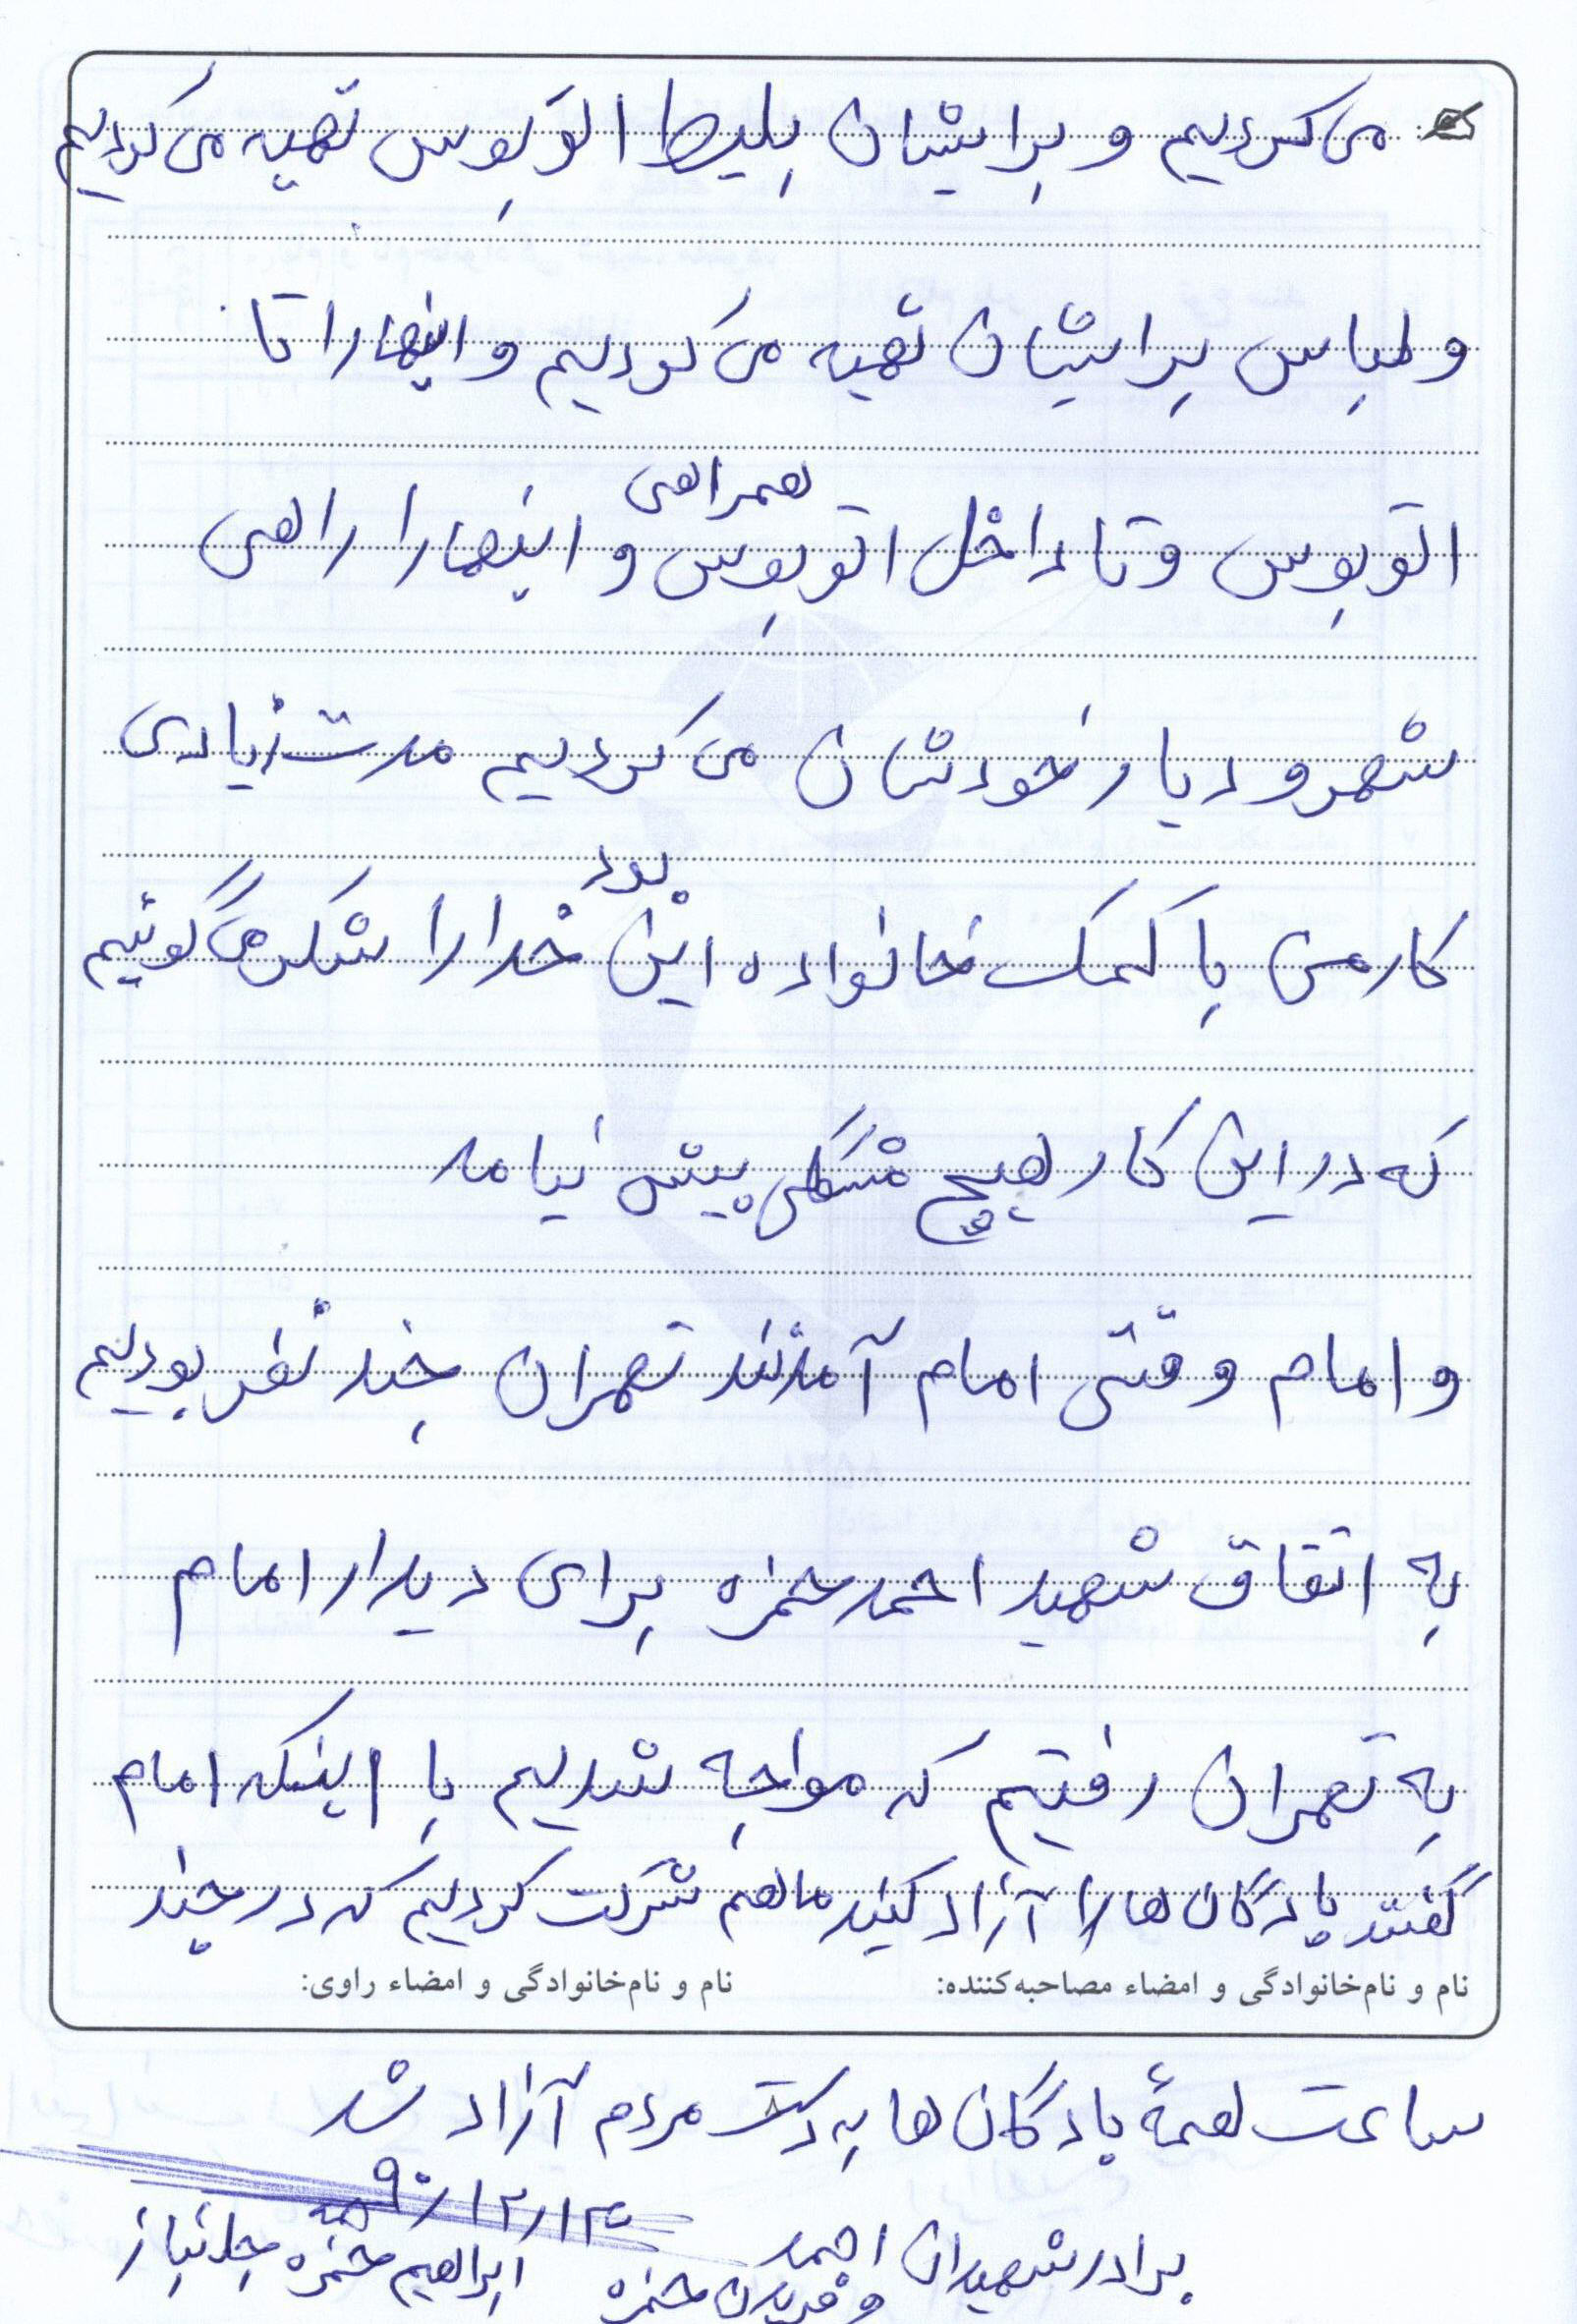 می کردیم و برایشان بلیط اتوبوس تهیه می کردیم
و لباس برایشان تهیه می کردیم و اینها را تا
همراهی
اتوبوس و تا داخل اتوبوس و اینها را راهی
شهر و دیار خودشان می کردیم مدت زیادی
بود
کار من با کمک خانواده این خدا را شکر می گوئیم
که در این کار هیچ مشکلی پیش نیامد
و امام وقتی امام آمدند تهران چند نفر بودیم
به اتفاق شهید احمد حمزه برای دیدار امام
به تهران رفتیم که مواجه شدیم با اینکه امام
گفتند پادگان ها را آزاد کنید ما هم شرکت کردیم که در چند
نام و نام‌خانوادگی و امضاء مصاحبه‌کننده: نام و نام‌خانوادگی و امضاء راوی:
ساعت همهٔ پادگان ها به دست مردم آزاد شد
برادر شهیدان احمد
و فریدن حمزه ابراهیم حمزه جانباز